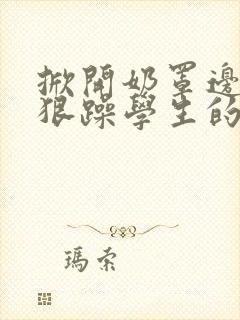 掀開奶罩邊
狠躁學生的
瑪索